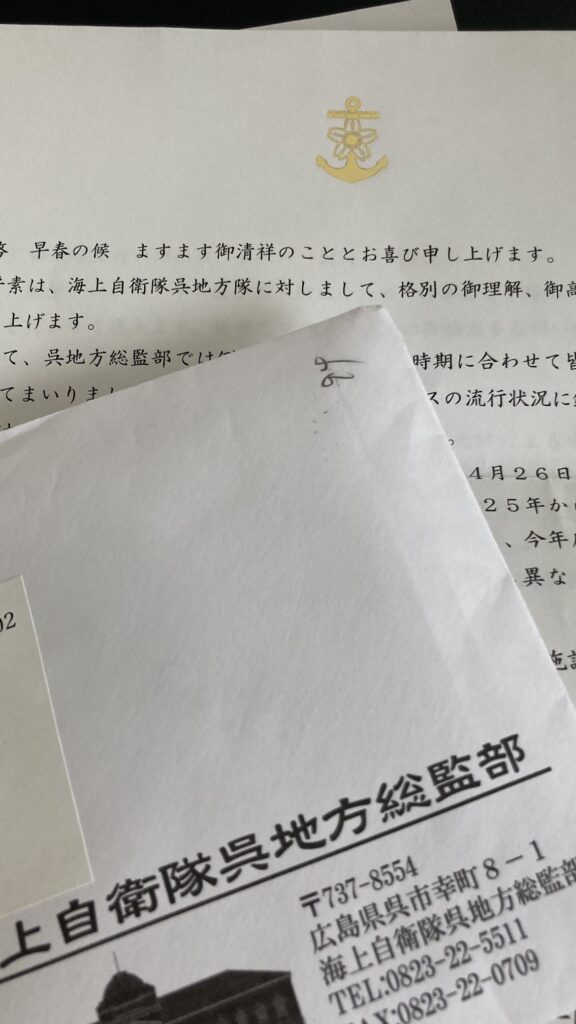 早春の候　ますます御清祥のこととお喜び申し上げます。
素は、海上自衛隊呉地方隊に対しまして、格別の御理解、御高
上げます。
て、呉地方総監部では
時期に合わせて皆
てまいりまし
スの流行状況に
。
4月26日
25年か
、今年
異な
施設
02
上自衛隊呉地方総監部
〒737-8554
広島県呉市幸町8-1
海上自衛隊呉地方総監部
TEL:0823-22-5511
AX:0823-22-0709